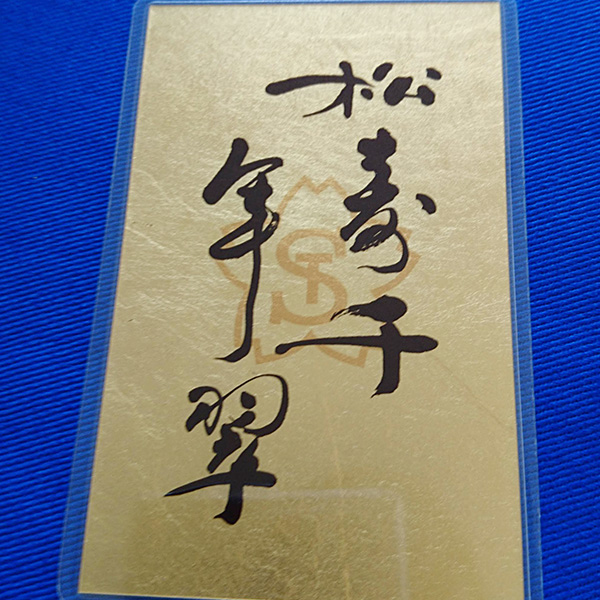 松寿千
年翠
ST